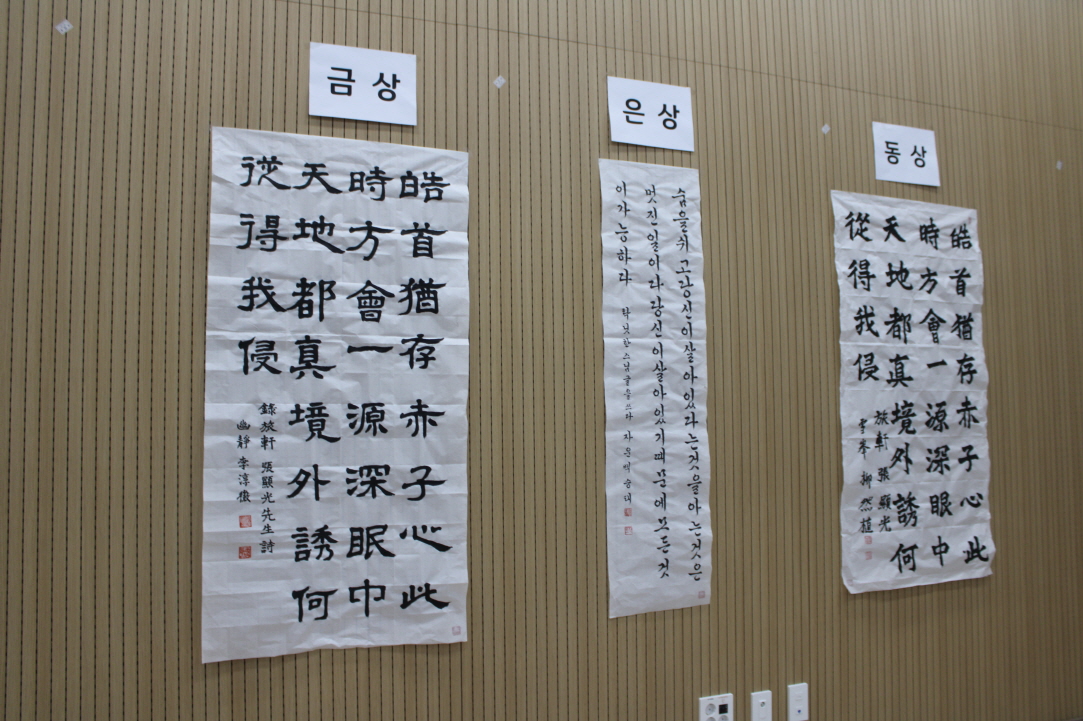 금상
皓首猶存赤子心此
時方會一源深眠中
天地都真境外誘何
從得我侵
錄旅軒 張顯光先生詩
幽靜 李淳
은상
숨을쉬고당신이살아있다는것을아는것은
멋진일이다당신이살아있기때문에모든것
이가능하다
틱낫한스님글을쓰다
동상
皓首猶存赤子心此
時方會一源深眠中
天地都真境外誘何
從得我侵
旅軒 張顯光
雪峯 柳